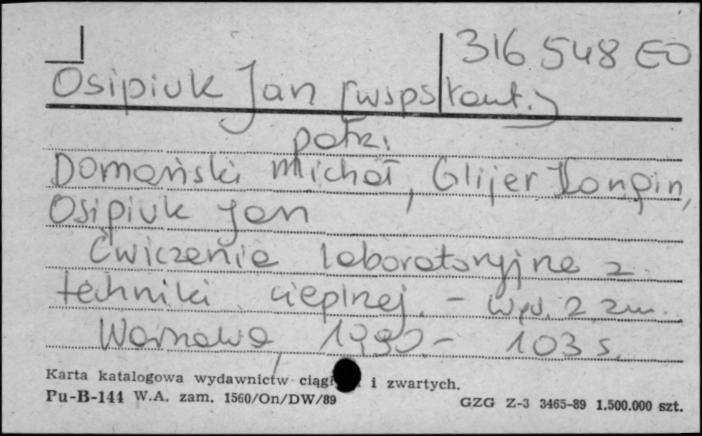 316 548 EO
Osipiuk Jan [wsp./aut.]
patrz:
Domański Michał, Glijer Longin,
Osipiuk Jan
Ćwiczenia laboratoryjne z
techniki cieplnej. - Wyd. 2 zm.
Warszawa, 1990.- 103 s.
Karta katalogowa wydawnictw i zwartych.
Pu-B-144 W.A. zam. 1560/On/DW/89
GZG Z-3 3465-89 1.500.000 szt.